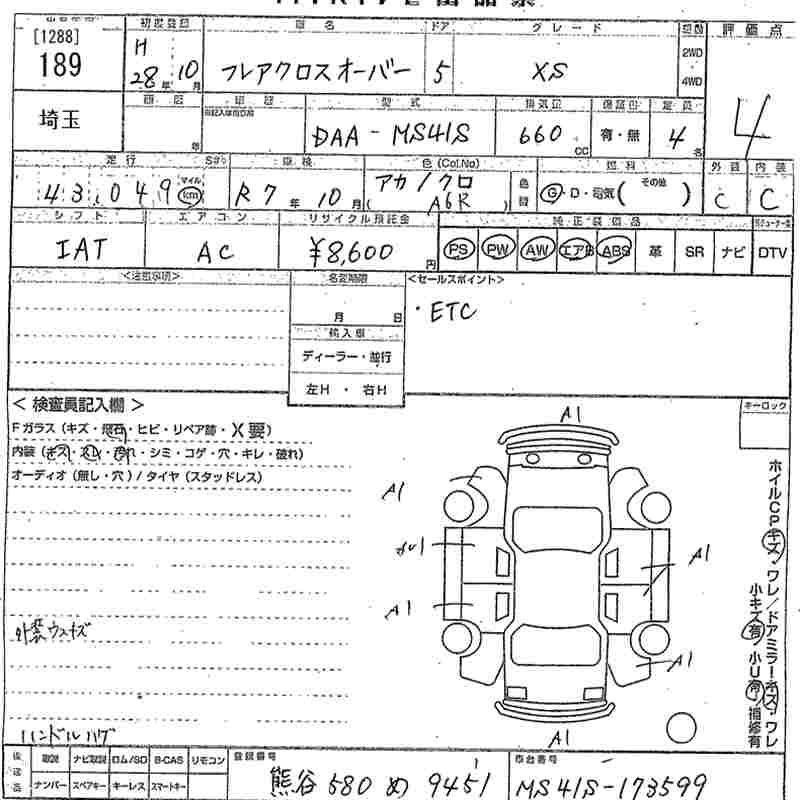 [1288]
189
埼玉
初度登録
H 28年 10月
車名
フレアクロスオーバー
ドア
5
グレード
XS
2WD
4WD
評価点
4
型式
DAA-MS41S
排気量
660 CC
有・無
定員
4名
走行
43,049 km
マイル
車検
R7年 10月
色(Col.No)
アカ/クロ
A6R
色替
燃料
G・D・電気( その他 )
外装
C
内装
C
シフト
IAT
エアコン
AC
リサイクル預託金
¥8,600円
純正装備品
PS PW AW エアB ABS 革 SR ナビ DTV
<注意事項>
名変期限
月 日
輸入車
ディーラー・並行
左H・右H
<セールスポイント>
・ETC
<検査員記入欄>
Fガラス(キズ・飛石・ヒビ・リペア跡・X要)
内装(キズ・スレ・汚れ・シミ・コゲ・穴・キレ・破れ)
オーディオ(無し・穴)/タイヤ(スタッドレス)
外装ウスキズ
ハンドルハゲ
キーロック
A1
A1
A1
A1
A1
A1
ホイルCPキズ・ワレ/ドアミラーキズ・ワレ
小キズ有・小U有・補修有
後送品
取説 ナビ取説 ロム/SD B-CAS リモコン
ナンバー スペアキー キーレス スマートキー
登録番号
熊谷 580 め 9451
車台番号
MS41S-173599